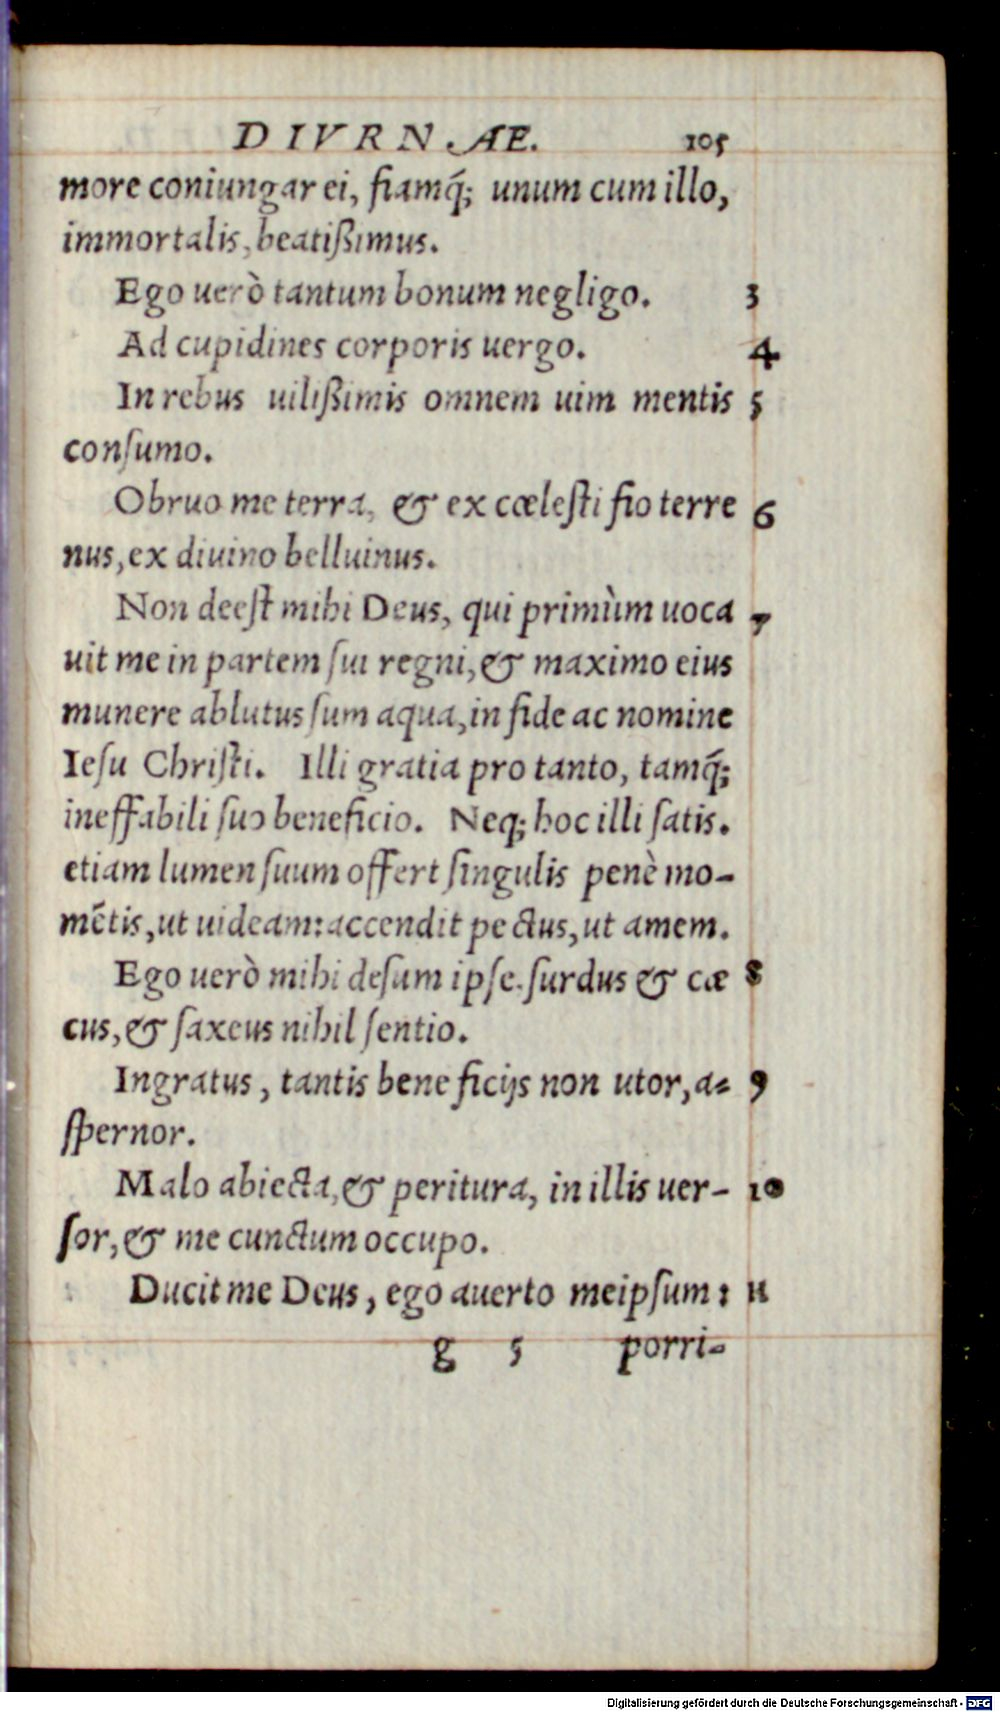 DIVRNÆ. 105
more coniungar ei, fiamq́; unum cum illo,
immortalis, beatißimus.
Ego uerò tantum bonum negligo. 3
Ad cupidines corporis uergo. 4
In rebus uilißimis omnem uim mentis 5
conſumo.
Obruo me terra, & ex cœleſti fio terre 6
nus, ex diuino belluinus.
Non deeſt mihi Deus, qui primùm uoca 7
uit me in partem ſui regni, & maximo eius
munere ablutus ſum aqua, in fide ac nomine
Ieſu Chriſti. Illi gratia pro tanto, tamq́;
ineffabili ſuo beneficio. Neq; hoc illi ſatis.
etiam lumen ſuum offert ſingulis penè mo-
mētis, ut uideam: accendit pectus, ut amem.
Ego uerò mihi deſum ipſe. ſurdus & cæ 8
cus, & ſaxeus nihil ſentio.
Ingratus, tantis beneficijs non utor, a- 9
ſpernor.
Malo abiecta, & peritura, in illis uer- 10
ſor, & me cunctum occupo.
Ducit me Deus, ego auerto meipſum: 11
g 5 porri-
Digitalisierung gefördert durch die Deutsche Forschungsgemeinschaft - DFG